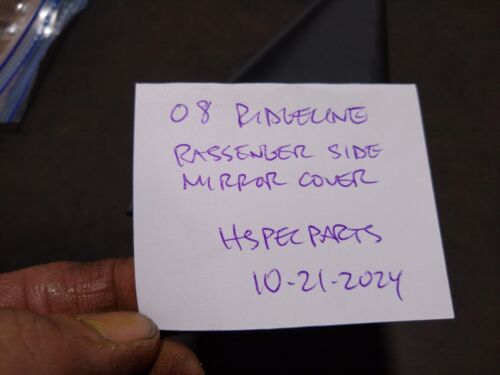 08 RIDGELINE
PASSENGER SIDE
MIRROR COVER
HSPECPARTS
10-21-2024